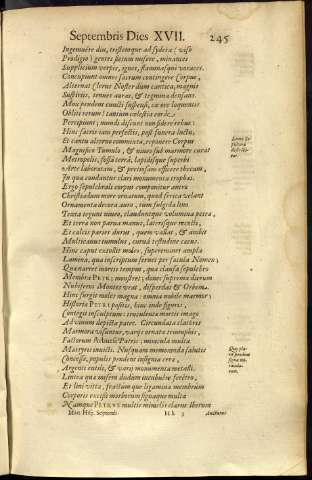 Septembris Dies XVII. 245
Ingemuêre diu, tristemque ad sydera: viso
Prodigio) gentes factum misere, minantes
Supplicium verpis, ignes, flammasque voraces.
Concupiunt omnes sacrum contingere Corpus,
Alternat Clerus Noster dum cantica, magnis
Suspiriis, tenues auras, & tegmina densant.
Mox pendent cuncti suspensi, ex ore loquentis
Obliti rerum: tantùm cælestia corde
Percipiunt, mundi discunt non fidere rebus:
Hinc sacris iam perfectis, post funera luctu,
Et cantu alterno comminxta, reponere Corpus
Magnifico Tumulo, & niueo sub marmore curat
Metropolis, fossâ terrâ, lapidisque superbi
Arte laboratum, & pretiosam efficere thecam,
In qua condantur clari monumenta trophæi.
Ergo sepulchrali corpus componitur antro
Christiadum more ornatum, quod serica velant
Ornamenta decora auro, tum fulgida lino
Texta tegunt niueo, clauduntque volumina petra,
Et terra non parua manus, lateresque mixti,
Et calcis paries durus, quem vallat, & ambit
Multicauus tumulus, curuâ testudine cæcus.
Hinc caput extollit moles, supereminet ampla
Lamina, qua inscriptum seruet per sæcula Nomen;
Quæ narret inoris tempus, qua clausa sepulchro
Membra PETRI; monstret; donec suprema dierum
Nubiferos Montes vrat, disperdat & Orbem.
Hinc surgit moles magna: omnia nobile marmor;
Historia PETRI positis, hinc inde figuris,
Contegit insculptum: truculenta mortis imago
Ad viuum depicta patet. Circundata clathris
Marmora visuntur, variè ornata triumphis,
Factorum & ductu Patris; miracula multa
Martyris inuicti. Nusquam memoranda salutis
Concessæ, populis pendent insignia cera,
Argenti extis, & varij monumenta metalli.
Lintea qua miseri dudum mentibus ferêtro,
Et lini vitta, fractum que ligamina membrium
Corporis excisi morborum signaque multa
Namque PETRVS multis miraclis clarus Iberum
Mart. Hisp. Septemb. Hh 3 Auctorem
Locus Sepulturæ describitur.
Quòd plura pendent signa miraculorum.